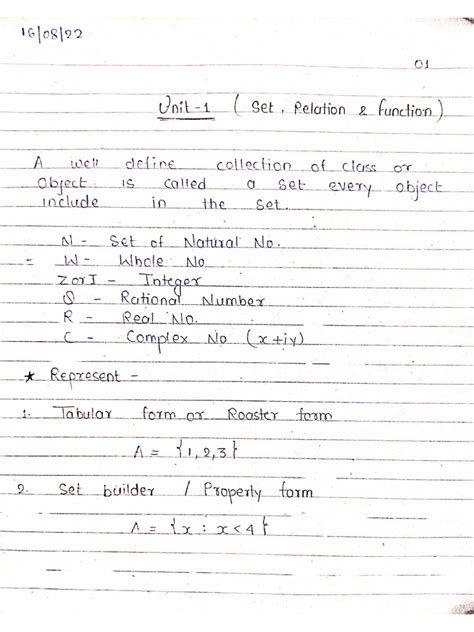 16/08/22
01
Unit-1 ( Set, Relation & function )
A well define collection of class or
Object is called a set every object
include in the set.
N - Set of Natural No.
= W - Whole No
Z or I - Integer
Q - Rational Number
R - Real No.
C - Complex No (x+iy)
★ Represent -
1. Tabular form or Rooster form
A = {1,2,3}
2. Set builder / Property form
A = {x : x<4}